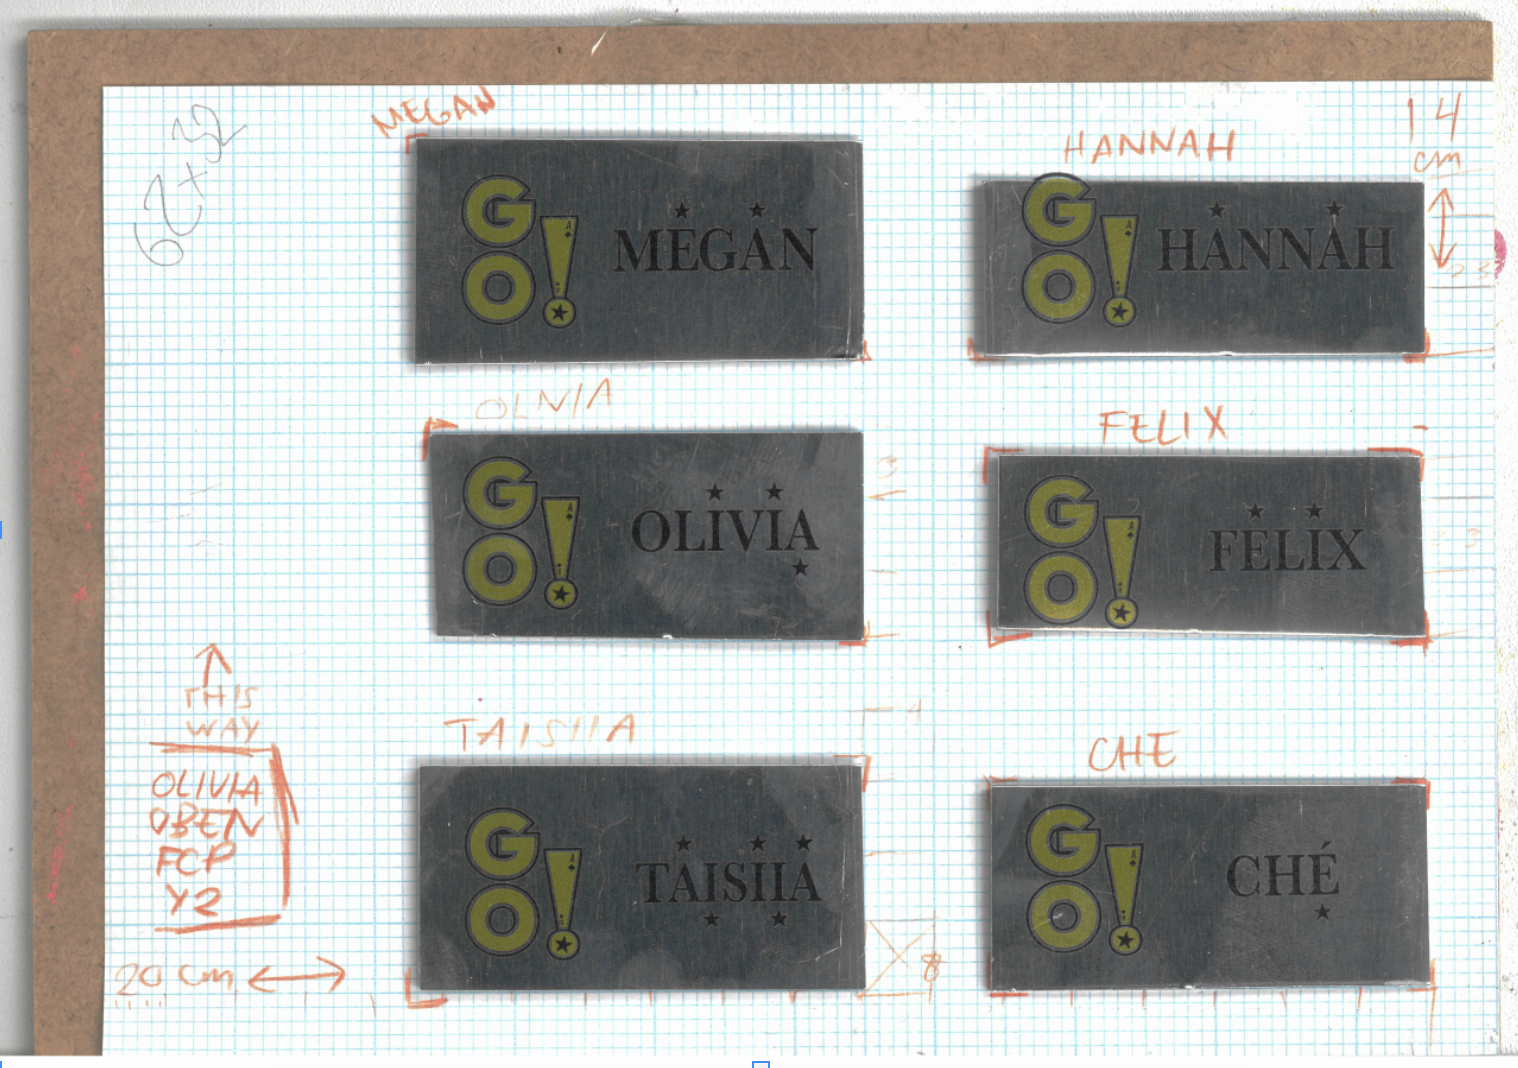 62 x 32
MEGAN
GO!
MEGAN
HANNAH
14
cm
GO!
HANNAH
23
OLIVIA
GO!
OLIVIA
3
FELIX
GO!
FELIX
23
THIS
WAY
OLIVIA
OBEN
FCP
Y2
20 cm
TAISIIA
4
GO!
TAISIIA
8
CHE
GO!
CHÉ